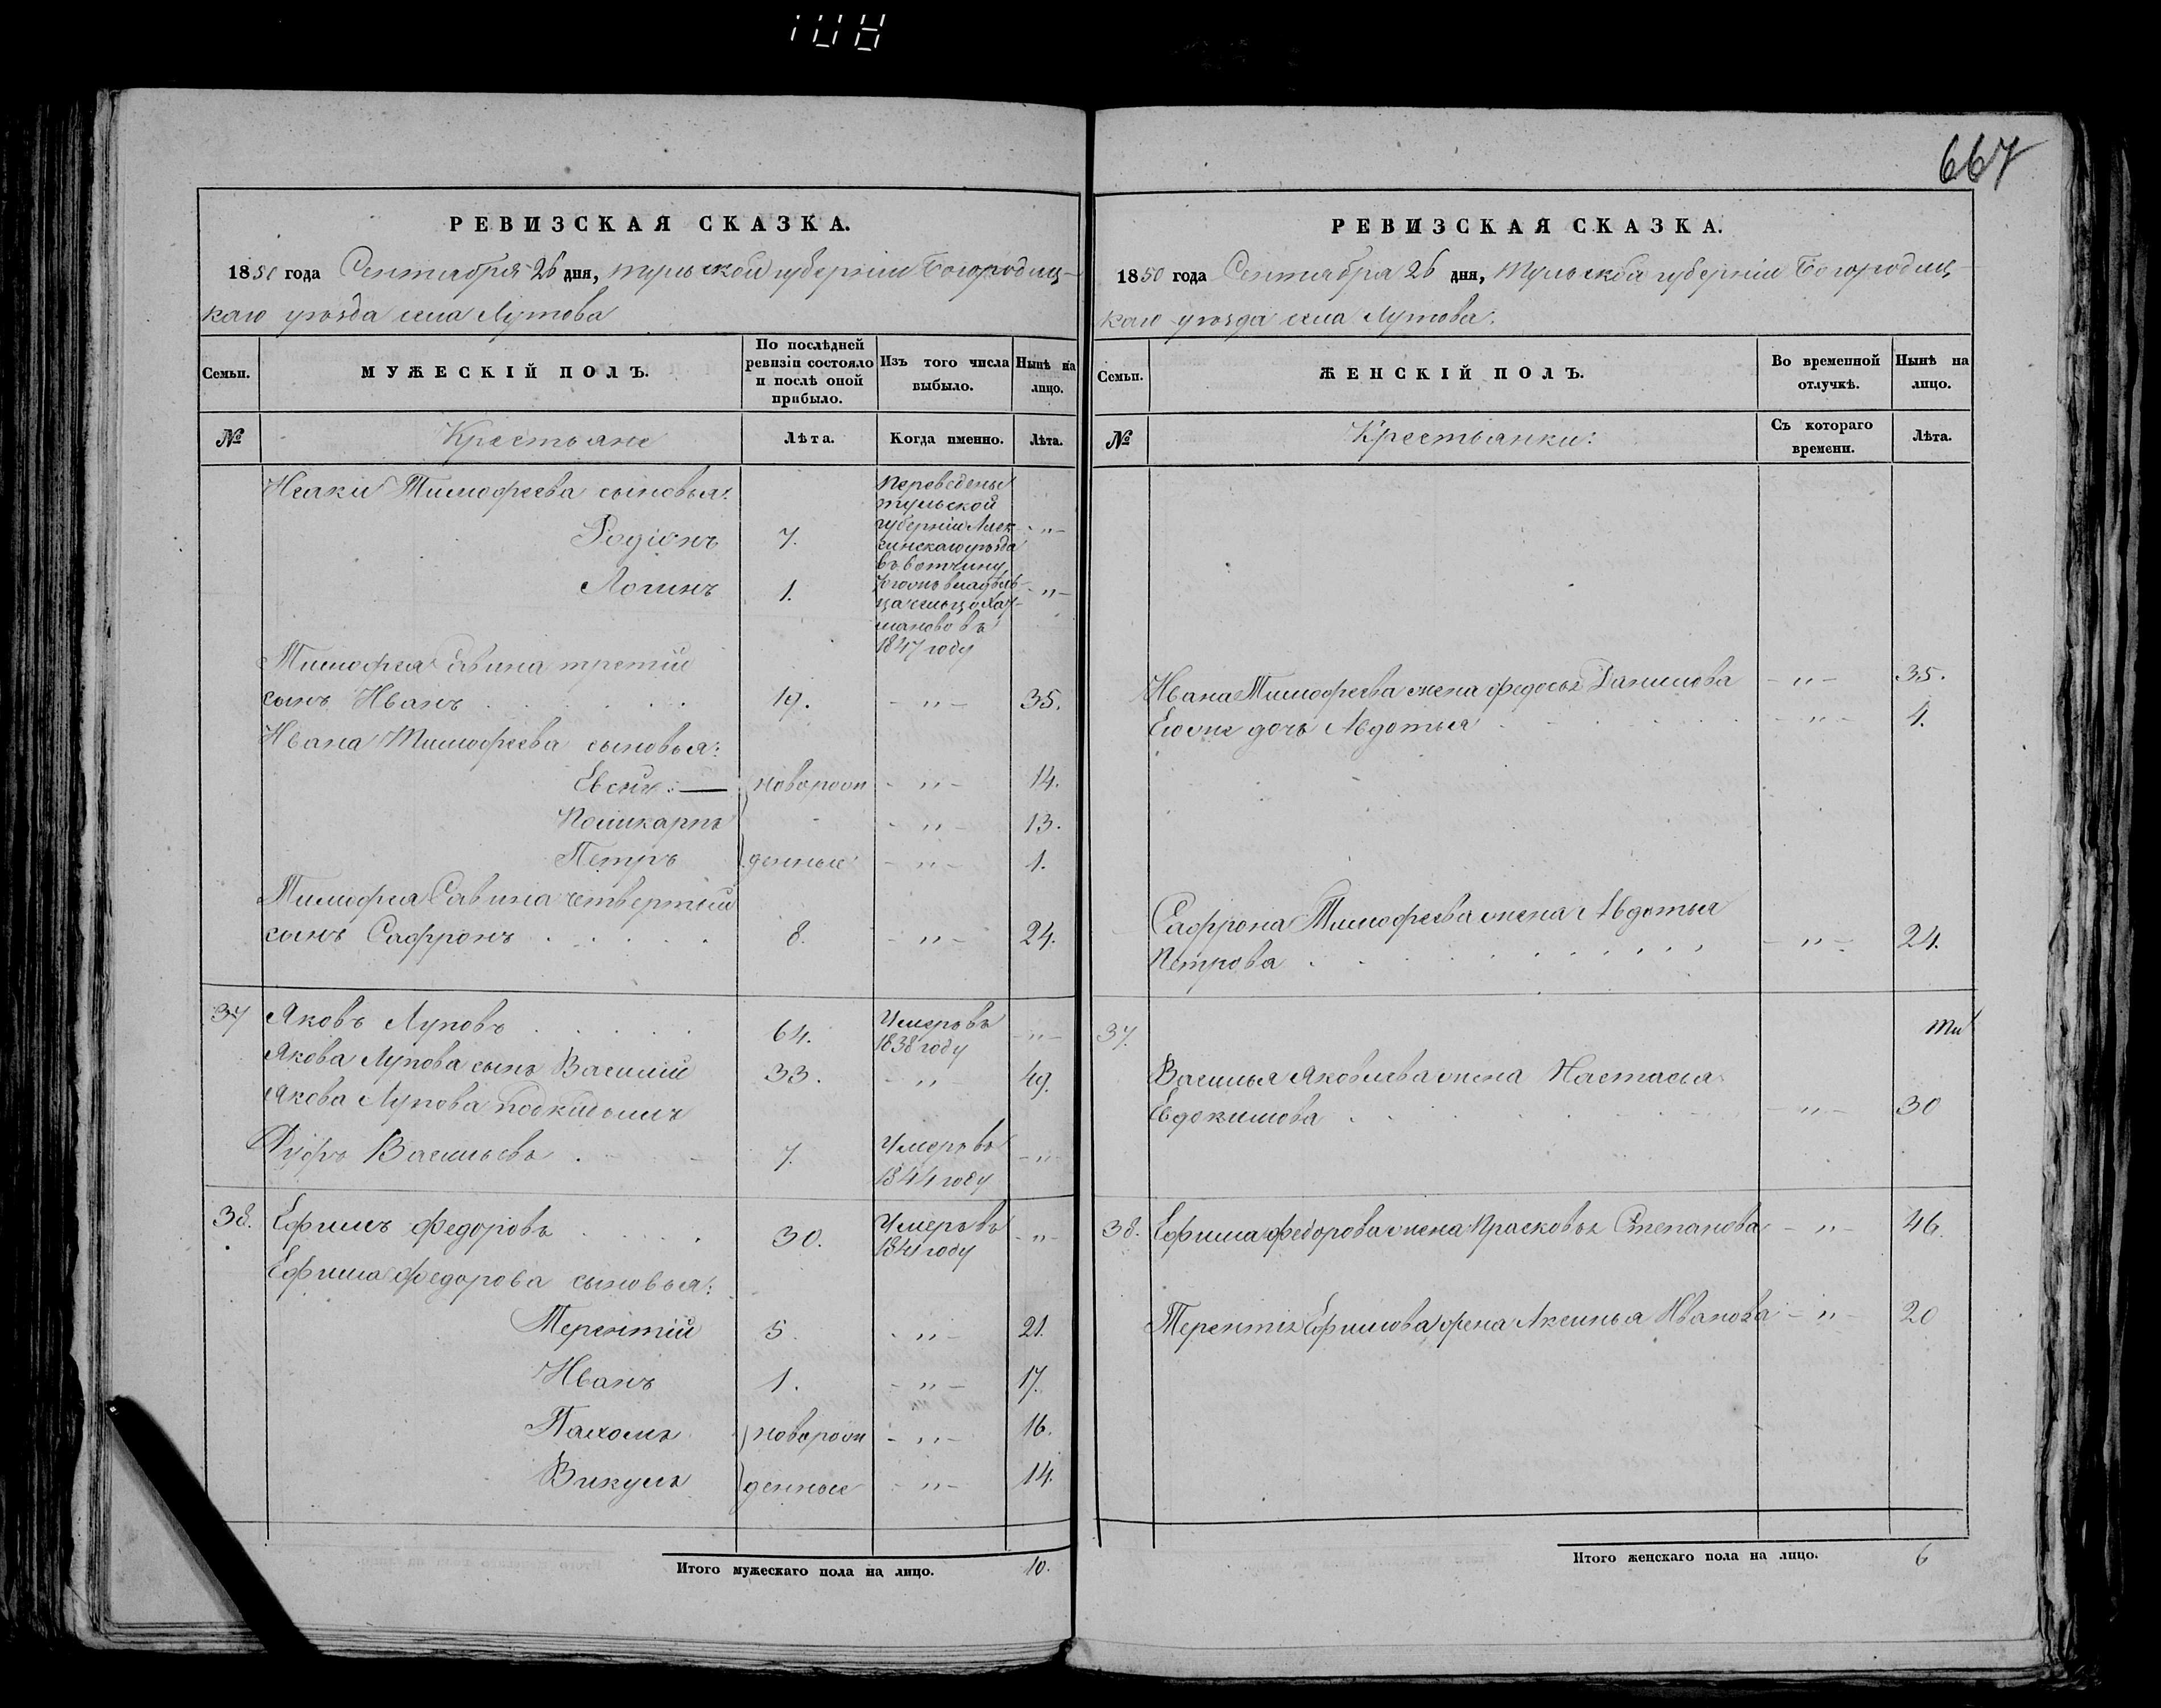 108
667
РЕВИЗСКАЯ СКАЗКА.
1850 года Сентября 26 дня, Тульской губернiи Богородиц-
каго уѣзда села Лутова
Семьи.
МУЖЕСКIЙ ПОЛЪ.
По послѣдней ревизiи состояло и послѣ оной прибыло.
Изъ того числа выбыло.
Нынѣ на лицо.
№
Крестьяне
Лѣта.
Когда именно.
Лѣта.
Исаки Тимофеева сыновья:
Родiонъ 7. -"-
Логинъ 1. -"-
Переведены
тульской
губернiи Алек-
синскаго уѣзда
въ вотчину
тогожъ владѣль-
ца сельцо
маново въ
1847 году
Тимофея Савина третiй
сынъ Иванъ 19. -"- 35.
Ивана Тимофеева сыновья:
Евсей: новорож -"- 14.
Поликарпъ -"- 13.
Петръ денные -"- 1.
Тимофея Савина четвертый
сынъ Сафронъ 8. -"- 24.
37 Яковъ Луповъ 64. Умеръ въ 1838 году -"-
Якова Лупова сынъ Василiй 33. -"- 49.
Якова Лупова подкидышъ
Васильевъ 7. Умеръ въ 1844 году -"-
38. Ефимъ Федоровъ 30. Умеръ въ 1841 году -"-
Ефима Федорова сыновья:
Терентiй 5. -"- 21.
Иванъ 1. -"- 17.
Пахомъ новорож -"- 16.
Викулъ денные -"- 14.
Итого мужескаго пола на лицо. 10.
РЕВИЗСКАЯ СКАЗКА.
1850 года Сентября 26 дня, Тульской губернiи Богородиц-
каго уѣзда села Лутова.
Семьи.
ЖЕНСКIЙ ПОЛЪ.
Во временной отлучкѣ.
Нынѣ на лицо.
№
Крестьянки:
Съ котораго времени.
Лѣта.
Ивана Тимофеева жена Федосья Данилова -"- 35.
Егоже дочь Авдотья -"- 4.
Сафрона Тимофеева жена Авдотья
Петрова -"- 24.
37.
Василья Яковлева жена Настасья
Евдокимова -"- 30
38. Ефима Федорова жена Прасковья Степанова -"- 46.
Терентiя Ефимова жена Аксинья Иванова -"- 20
Итого женскаго пола на лицо. 6